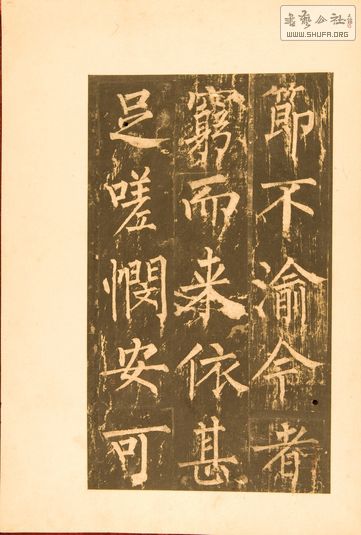 節不渝今者
窮而来依甚
足嗟憫安可
書藝公社
WWW.SHUFA.ORG